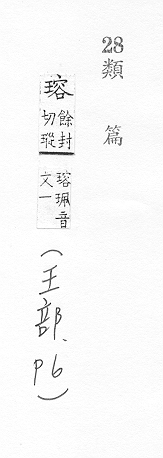 28 類篇
瑢 餘封切瑽瑢珮音文一 (王部. p6)